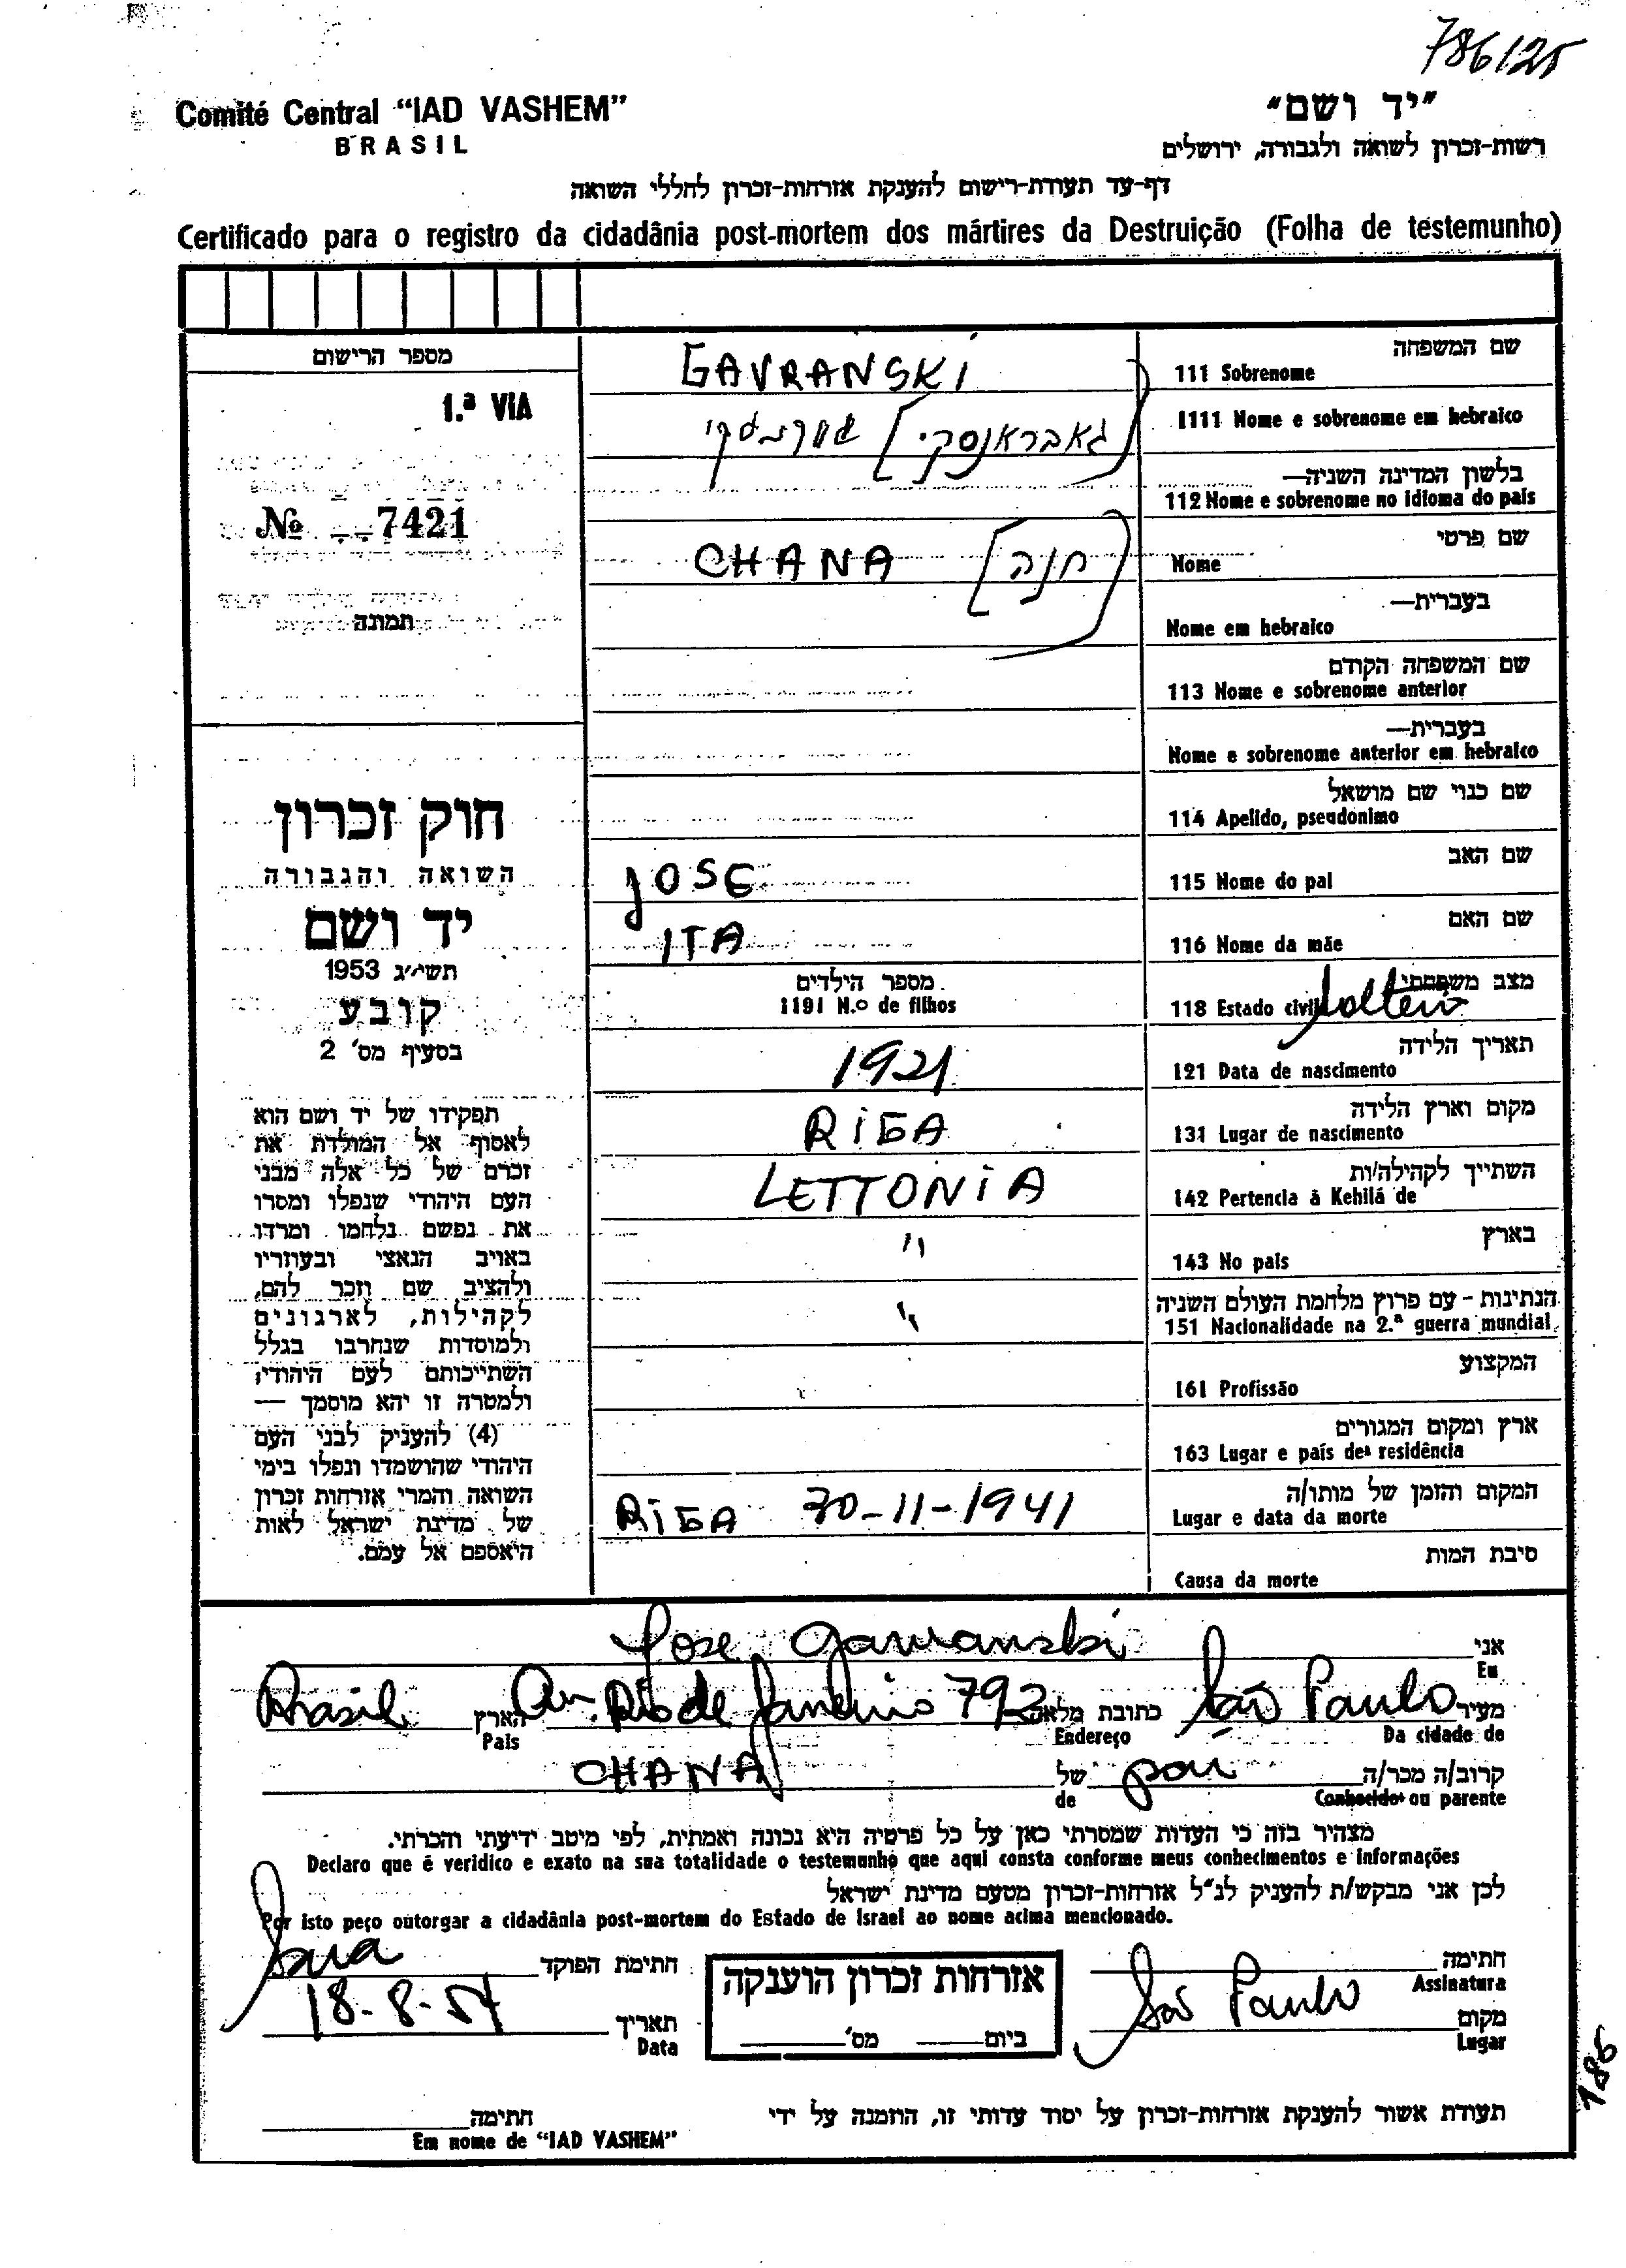 786125
Comité Central “IAD VASHEM”
BRASIL
״יד ושם״
רשות-זכרון לשואה ולגבורה, ירושלים
דף-עד תעודת-רישום להענקת אזרחות-זכרון לחללי השואה
Certificado para o registro da cidadânia post-mortem dos mártires da Destruição (Folha de testemunho)
מספר הרישום
1.ª VIA
№ 7421
תמונה
חוק זכרון
השואה והגבורה
יד ושם
תשי״ג 1953
קובע
בסעיף מס׳ 2
תפקידו של יד ושם הוא
לאסוף אל המולדת את
זכרם של כל אלה מבני
העם היהודי שנפלו ומסרו
את נפשם נלחמו ומרדו
באויב הנאצי ובעוזריו
ולהציב שם וזכר להם,
לקהילות, לארגונים
ולמוסדות שנחרבו בגלל
השתייכותם לעם היהודי;
ולמטרה זו יהא מוסמך —
(4) להעניק לבני העם
היהודי שהושמדו ונפלו בימי
השואה והמרי אזרחות זכרון
של מדינת ישראל לאות
היאספם אל עמם.
שם המשפחה
111 Sobrenome
GAVRANSKI
1111 Nome e sobrenome em hebraico
[גאבראנסקי]
בלשון המדינה השניה—
112 Nome e sobrenome no idioma do pais
שם פרטי
Nome
CHANA [חנה]
בעברית—
Nome em hebraico
שם המשפחה הקודם
113 Nome e sobrenome anterior
בעברית—
Nome e sobrenome anterior em hebraico
שם כנוי שם מושאל
114 Apelido, pseudonimo
שם האב
115 Nome do pai
JOSE
שם האם
116 Nome da mãe
ITA
מצב משפחתי
118 Estado civil Solteiro
מספר הילדים
1191 N.º de filhos
תאריך הלידה
121 Data de nascimento
1921
מקום וארץ הלידה
131 Lugar de nascimento
RIGA
השתייך לקהילה/ות
142 Pertencia à Kehilá de
LETTONIA
בארץ
143 No pais
"
הנתינות - עם פרוץ מלחמת העולם השניה
151 Nacionalidade na 2.ª guerra mundial
"
המקצוע
161 Profissão
ארץ ומקום המגורים
163 Lugar e país de residência
המקום והזמן של מותו/ה
Lugar e data da morte
RIGA 30-11-1941
סיבת המות
Causa da morte
אני
Eu
Jose Gavranski
מעיר
Da cidade de
São Paulo
כתובת מלאה
Endereço
Av. Rio de Janeiro 793
הארץ
Pais
Brasil
קרוב/ה מכר/ה
Conhecido ou parente
pai
של
de
CHANA
מצהיר בזה כי העדות שמסרתי כאן על כל פרטיה היא נכונה ואמתית, לפי מיטב ידיעתי והכרתי.
Declaro que é veridico e exato na sua totalidade o testemunho que aqui consta conforme meus conhecimentos e informações
לכן אני מבקש/ת להעניק לנ״ל אזרחות-זכרון מטעם מדינת ישראל
Por isto peço outorgar a cidadânia post-mortem do Estado de Israel ao nome acima mencionado.
חתימה
Assinatura
מקום
Lugar
São Paulo
אזרחות זכרון הוענקה
ביום מס׳
חתימת הפוקד
תאריך
Data
18-8-54
תעודת אשור להענקת אזרחות-זכרון על יסוד עדותי זו, הוזמנה על ידי
חתימה
Em nome de “IAD VASHEM”
186